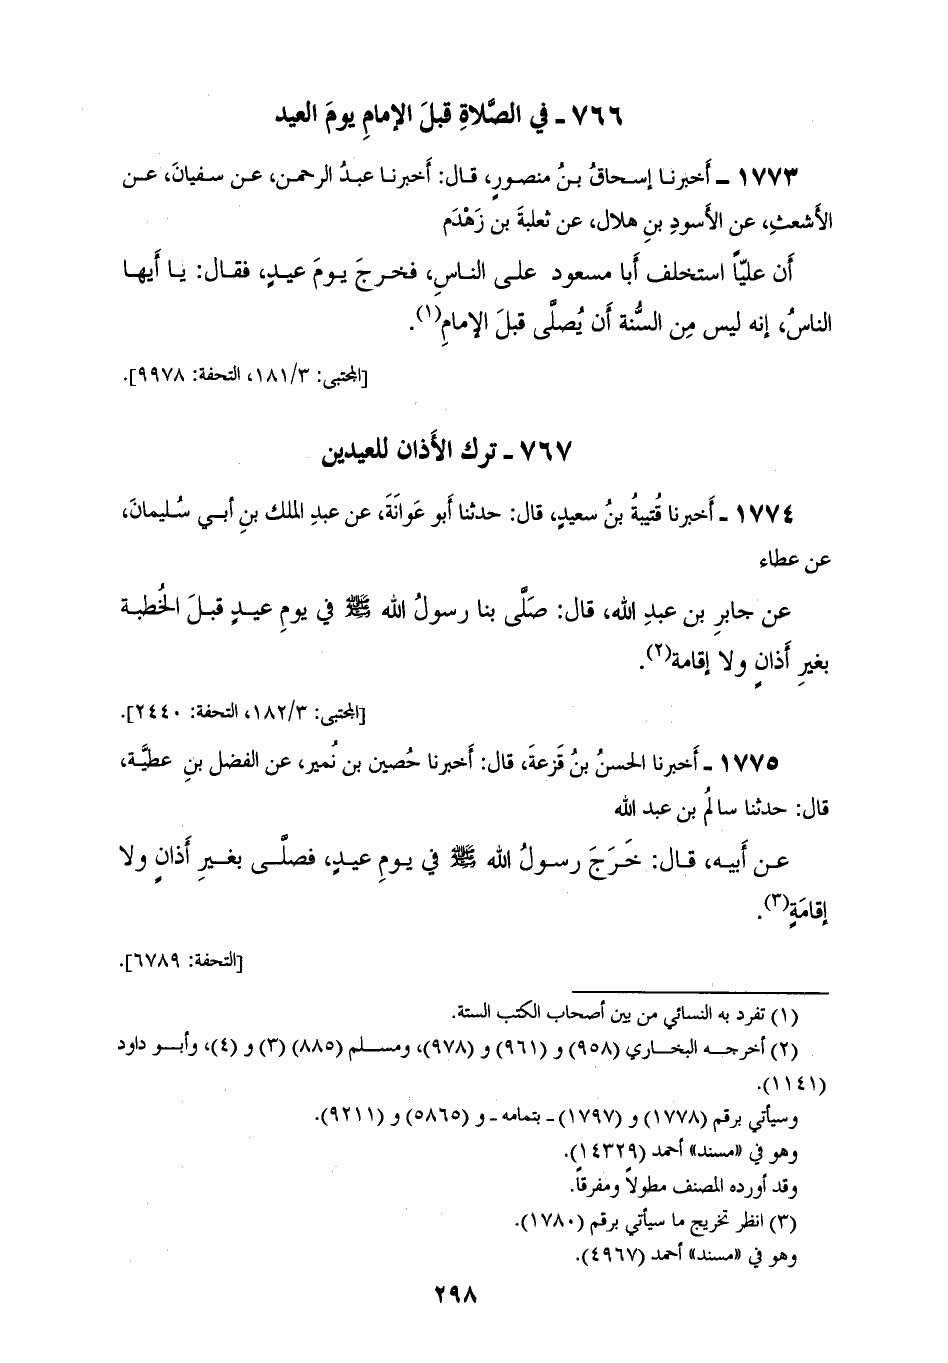 ٧٦٦ - في الصَّلاةِ قبلَ الإمامِ يومَ العيد
١٧٧٣ - أَخبرنا إسحاقُ بنُ منصورٍ، قال: أَخبرنا عبدُ الرحمن، عن سفيانَ، عن
الأشعثِ، عن الأسودِ بنِ هلال، عن ثعلبةَ بن زَهْدَم
أَن عليّاً استخلف أَبا مسعود على الناسِ، فخرجَ يومَ عيدٍ، فقال: يا أَيها
الناسُ، إنه ليس مِن السُّنة أَن يُصلَّى قبلَ الإمامِ(١).
[المجتبى: ١٨١/٣، التحفة: ٩٩٧٨].
٧٦٧ - ترك الأَذان للعيدين
١٧٧٤ - أَخبرنا قُتيبةُ بنُ سعيدٍ، قال: حدثنا أَبو عَوانَةَ، عن عبدِ الملك بنِ أَبي سُليمانَ،
عن عطاء
عن جابرِ بن عبدِ الله، قال: صَلَّى بنا رسولُ الله ﷺ في يومِ عيدٍ قبلَ الخُطبة
بغيرِ أَذانٍ ولا إقامة(٢).
[المجتبى: ١٨٢/٣، التحفة: ٢٤٤٠].
١٧٧٥ - أَخبرنا الحسنُ بنُ قَزعةَ، قال: أَخبرنا حُصين بن نُمير، عن الفضل بنِ عطيَّة،
قال: حدثنا سالمُ بن عبد الله
عن أَبيه، قال: خَرَجَ رسولُ الله ﷺ في يومِ عيدٍ، فصلَّى بغيرِ أَذانٍ ولا
إقامَةٍ(٣).
[التحفة: ٦٧٨٩].
(١) تفرد به النسائي من بين أصحاب الكتب الستة.
(٢) أخرجه البخاري (٩٥٨) و (٩٦١) و (٩٧٨)، ومسلم (٨٨٥) (٣) و (٤)، وأبو داود
(١١٤١).
وسيأتي برقم (١٧٧٨) و (١٧٩٧) - بتمامه - و (٥٨٦٥) و (٩٢١١).
وهو في «مسند» أحمد (١٤٣٢٩).
وقد أورده المصنف مطولاً ومفرقاً.
(٣) انظر تخريج ما سيأتي برقم (١٧٨٠).
وهو في «مسند» أحمد (٤٩٦٧).
٢٩٨